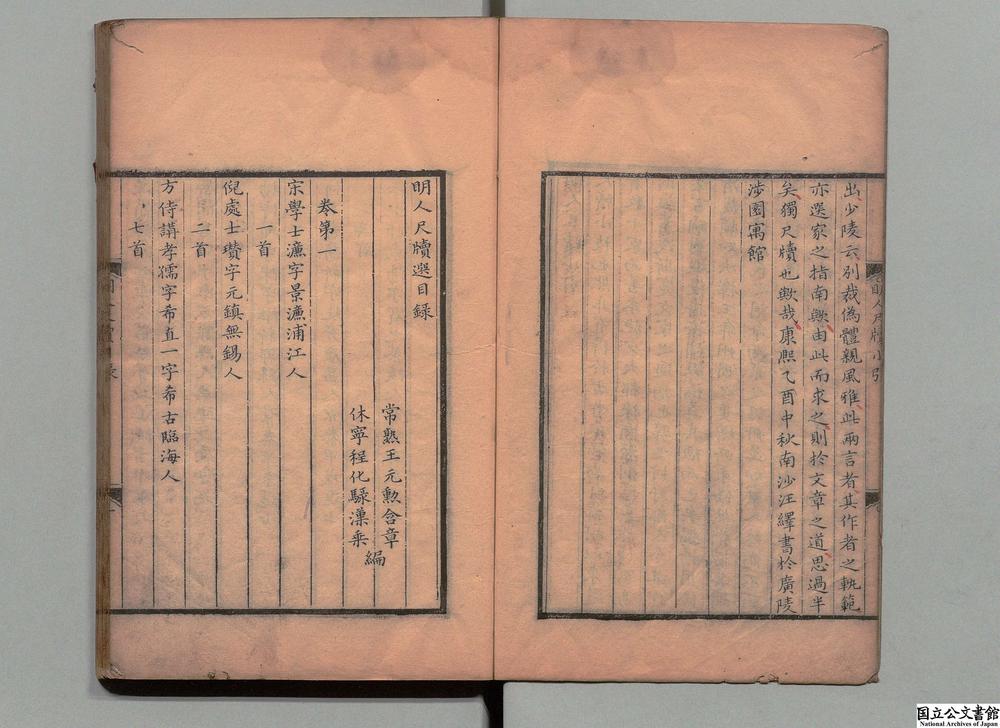 出少陵云別裁偽體親風雅此兩言者其作者之軌範
亦選家之指南歟由此而求之則於文章之道思過半
矣獨尺牘也歟哉康熙乙酉中秋南沙汪繹書於廣陵
涉園寓館
明人尺牘選目錄
常熟王元勲含章
休寧程化騄濼乘
編
卷第一
宋學士濂字景濂浦江人
一首
倪處士瓚字元鎮無錫人
二首
方侍講孝孺字希直一字希古臨海人
七首
国立公文書館
National Archives of Japan